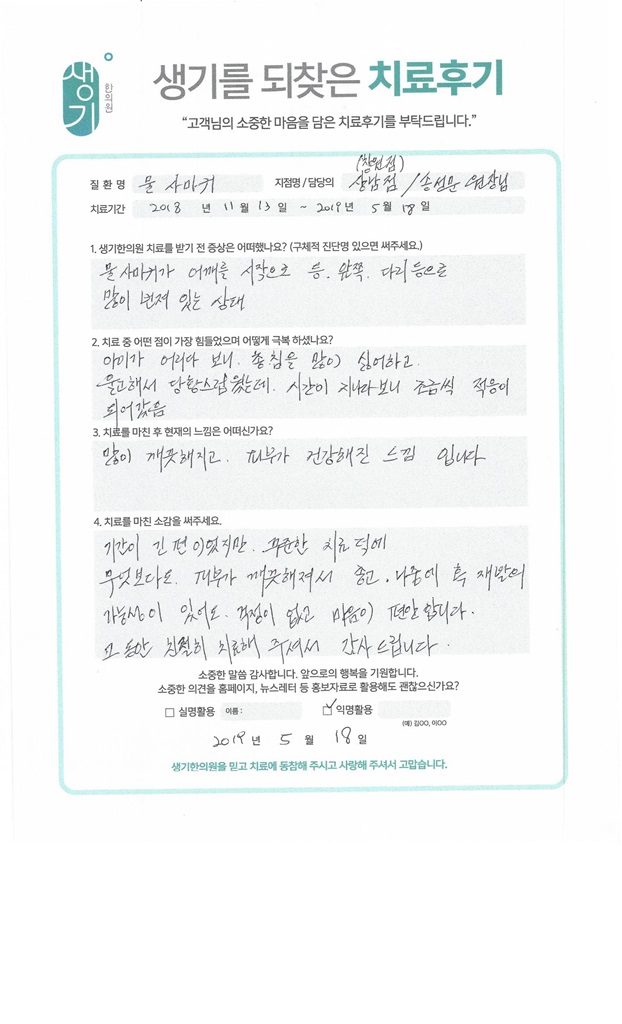 생기
한의원
생기를 되찾은 치료후기
"고객님의 소중한 마음을 담은 치료후기를 부탁드립니다."
(창원점)
질 환 명 물 사마귀 지점명 / 담당의 상남점 / 송선문 원장님
치료기간 2018 년 11 월 13 일 ~ 2019 년 5 월 18 일
1. 생기한의원 치료를 받기 전 증상은 어떠했나요? (구체적 진단명 있으면 써주세요.)
물사마귀가 어깨를 시작으로 등. 양쪽. 다리등으로
많이 번져 있는 상태
2. 치료 중 어떤 점이 가장 힘들었으며 어떻게 극복 하셨나요?
아이가 어리다 보니. 침을 많이 싫어하고.
울고해서 당황스럽웠는데. 시간이 지나다보니 조금씩 적응이
되어갔음
3. 치료를 마친 후 현재의 느낌은 어떠신가요?
많이 깨끗해지고. 피부가 건강해진 느낌 입니다
4. 치료를 마친 소감을 써주세요.
기간이 긴 편이었지만. 꾸준한 치료 덕에
무엇보다도. 피부가 깨끗해져서 좋고. 나중에 혹 재발의
가능성이 있어도. 걱정이 없고 마음이 편안합니다.
그 동안 친절히 치료해 주셔서 감사드립니다.
소중한 말씀 감사합니다. 앞으로의 행복을 기원합니다.
소중한 의견을 홈페이지, 뉴스레터 등 홍보자료로 활용해도 괜찮으신가요?
□ 실명활용 이름 : ☑ 익명활용
(예) 김OO, 이OO
2019 년 5 월 18 일
생기한의원을 믿고 치료에 동참해 주시고 사랑해 주셔서 고맙습니다.